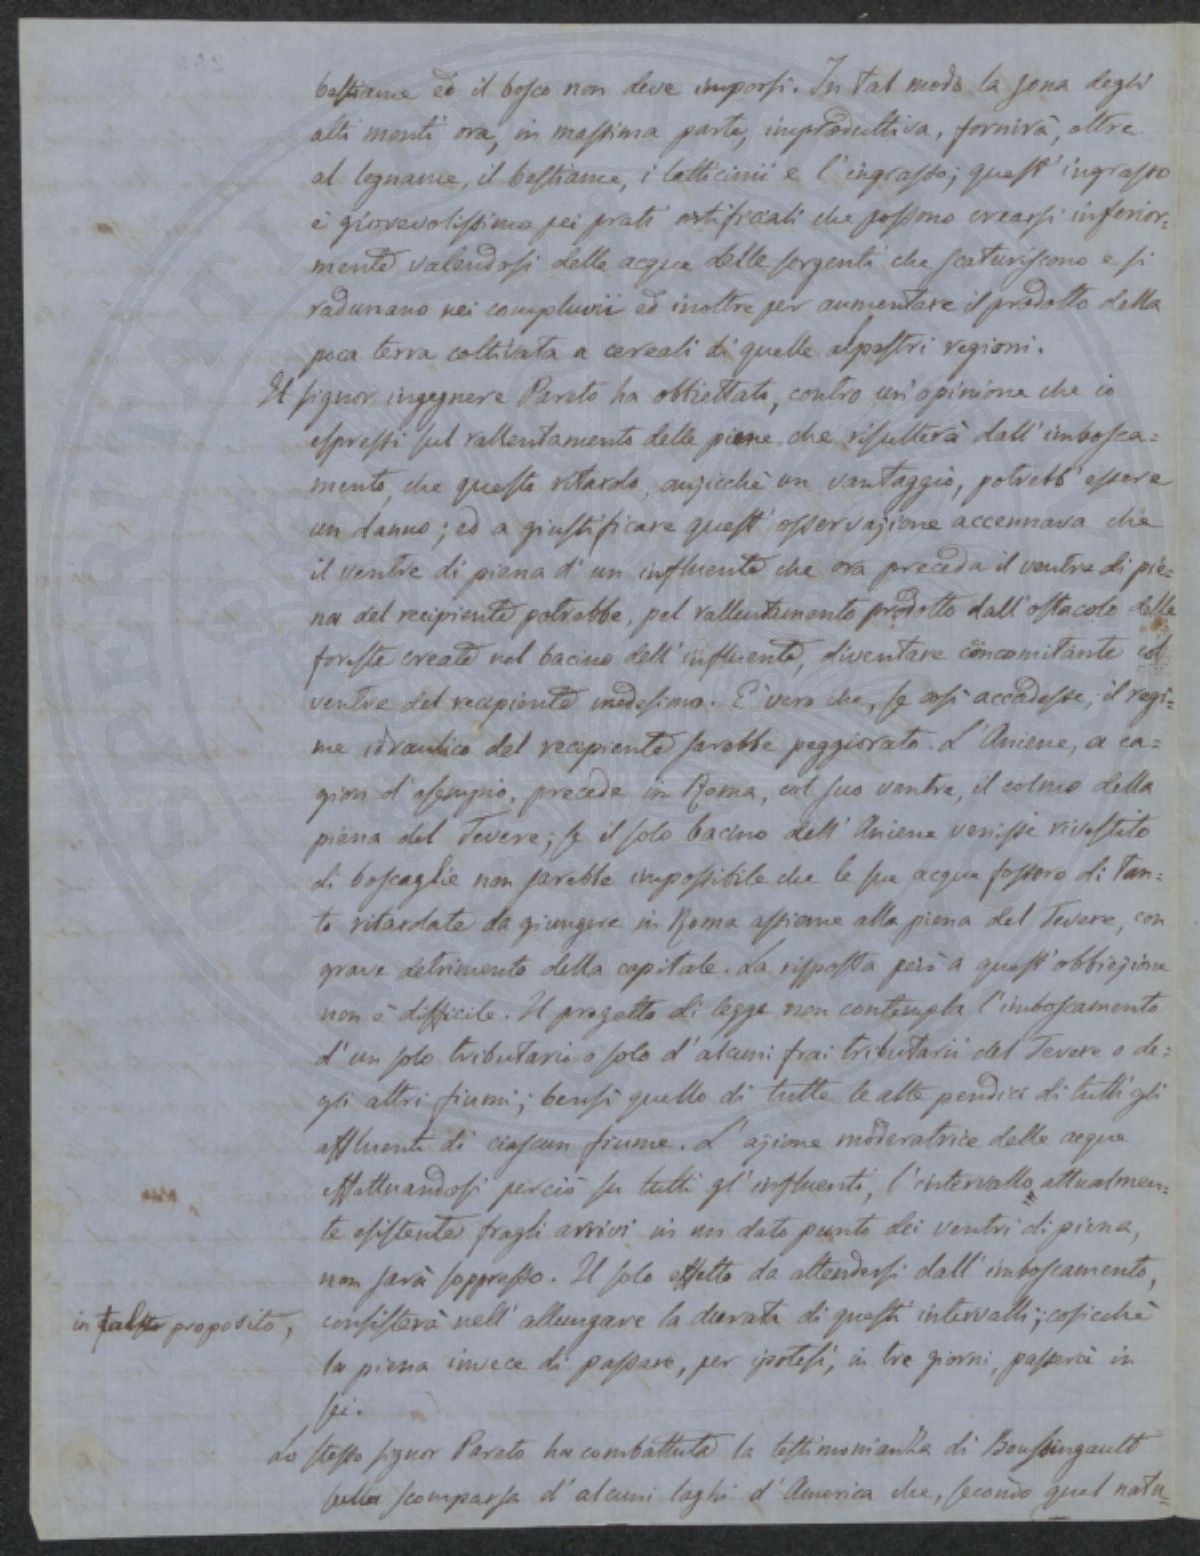 bestiame ed il bosco non deve imporsi. In tal modo la zona degli
alti monti ora, in massima parte, improduttiva, fornirà, oltre
al legname, il bestiame, i latticinii e l'ingrasso; quest'ingrasso
è giovevolissimo pei prati artificiali che possono crearsi inferior=
mente valendosi delle acque delle sorgenti che scaturiscono e si
radunano nei compluvii ed inoltre per aumentare il prodotto della
poca terra coltivata a cereali di quelle alpestri regioni.
Il signor ingegnere Pareto ha obbiettato, contro un'opinione che io
espressi sul rallentamento delle piene che risulterà dall'imbosca=
mento, che questo ritardo, anzicchè un vantaggio, potrebb'essere
un danno; ed a giustificare quest'osservazione accennava che
il ventre di piena d'un influente che ora preceda il ventre di pie=
na del recipiente potrebbe, pel rallentamento prodotto dall'ostacolo delle
foreste create nel bacino dell'influente, diventare concomitante col
ventre del recipiente medesimo. È vero che, se così accadesse, il regi=
me idraulico del recipiente sarebbe peggiorato. L'Aniene, a ca=
gion d'esempio, precede in Roma, col suo ventre, il colmo della
piena del Tevere; se il solo bacino dell'Aniene venisse rivestito
di boscaglie non sarebbe impossibile che le sue acque fossero di tan=
to ritardate da giungere in Roma assieme alla piena del Tevere, con
grave detrimento della capitale. La risposta però a quest'obbiezione
non è difficile. Il progetto di legge non contempla l'imboscamento
d'un solo tributario o solo d'alcuni frai tributarii del Tevere o de=
gli altri fiumi; bensì quello di tutte le alte pendici di tutti gli
affluenti di ciascun fiume. L'azione moderatrice delle acque
effettuandosi perciò su tutti gl'influenti, l'intervallo attualmen=
te esistente fragli arrivi in un dato punto dei ventri di piena,
non sarà soppresso. Il solo effetto da attendersi dall'imboscamento,
in tal proposito,
consisterà nell'allungare la durata di questi intervalli; cosicchè
la piena invece di passare, per ipotesi, in tre giorni, passerà in
sei.
Lo stesso signor Pareto ha combattuta la testimonianza di Boussingault
sulla scomparsa d'alcuni laghi d'America che, secondo quel natu=